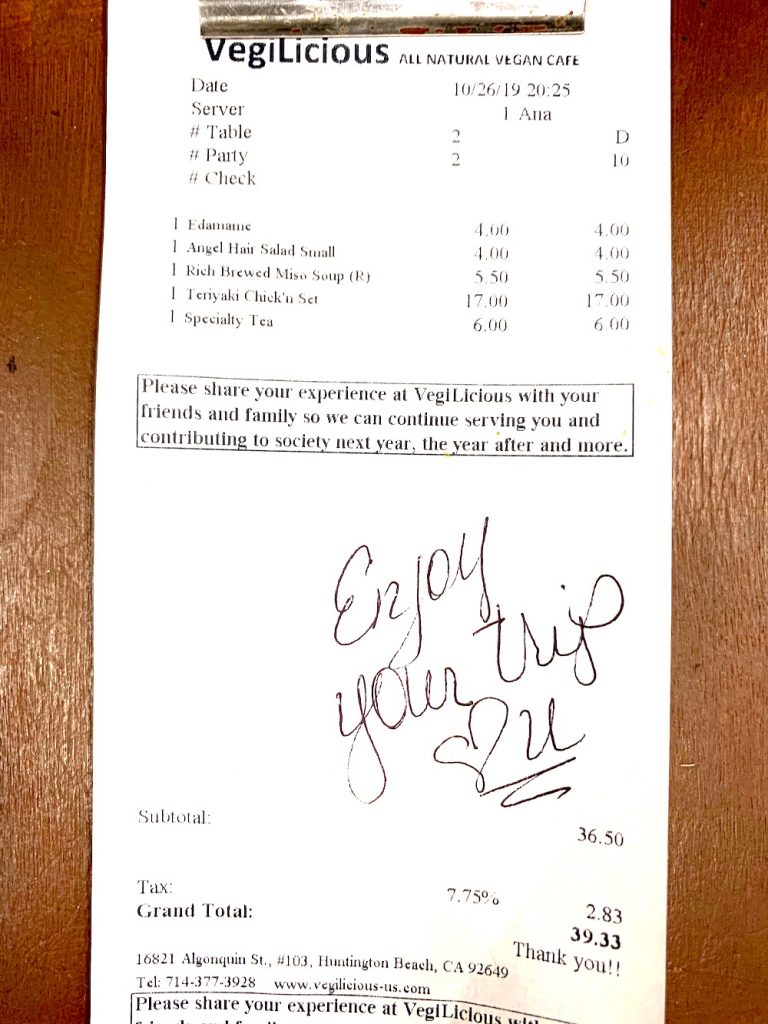 VegiLicious ALL NATURAL VEGAN CAFE
Date 10/26/19 20:25
Server 1 Ana
# Table 2 D
# Party 2 10
# Check
1 Edamame 4.00 4.00
1 Angel Hair Salad Small 4.00 4.00
1 Rich Brewed Miso Soup (R) 5.50 5.50
1 Teriyaki Chick'n Set 17.00 17.00
1 Specialty Tea 6.00 6.00
Please share your experience at VegiLicious with your
friends and family so we can continue serving you and
contributing to society next year, the year after and more.
Enjoy
your trip
♡ u
Subtotal: 36.50
Tax: 7.75% 2.83
Grand Total: 39.33
Thank you!!
16821 Algonquin St., #103, Huntington Beach, CA 92649
Tel: 714-377-3928 www.vegilicious-us.com
Please share your experience at VegiLicious with